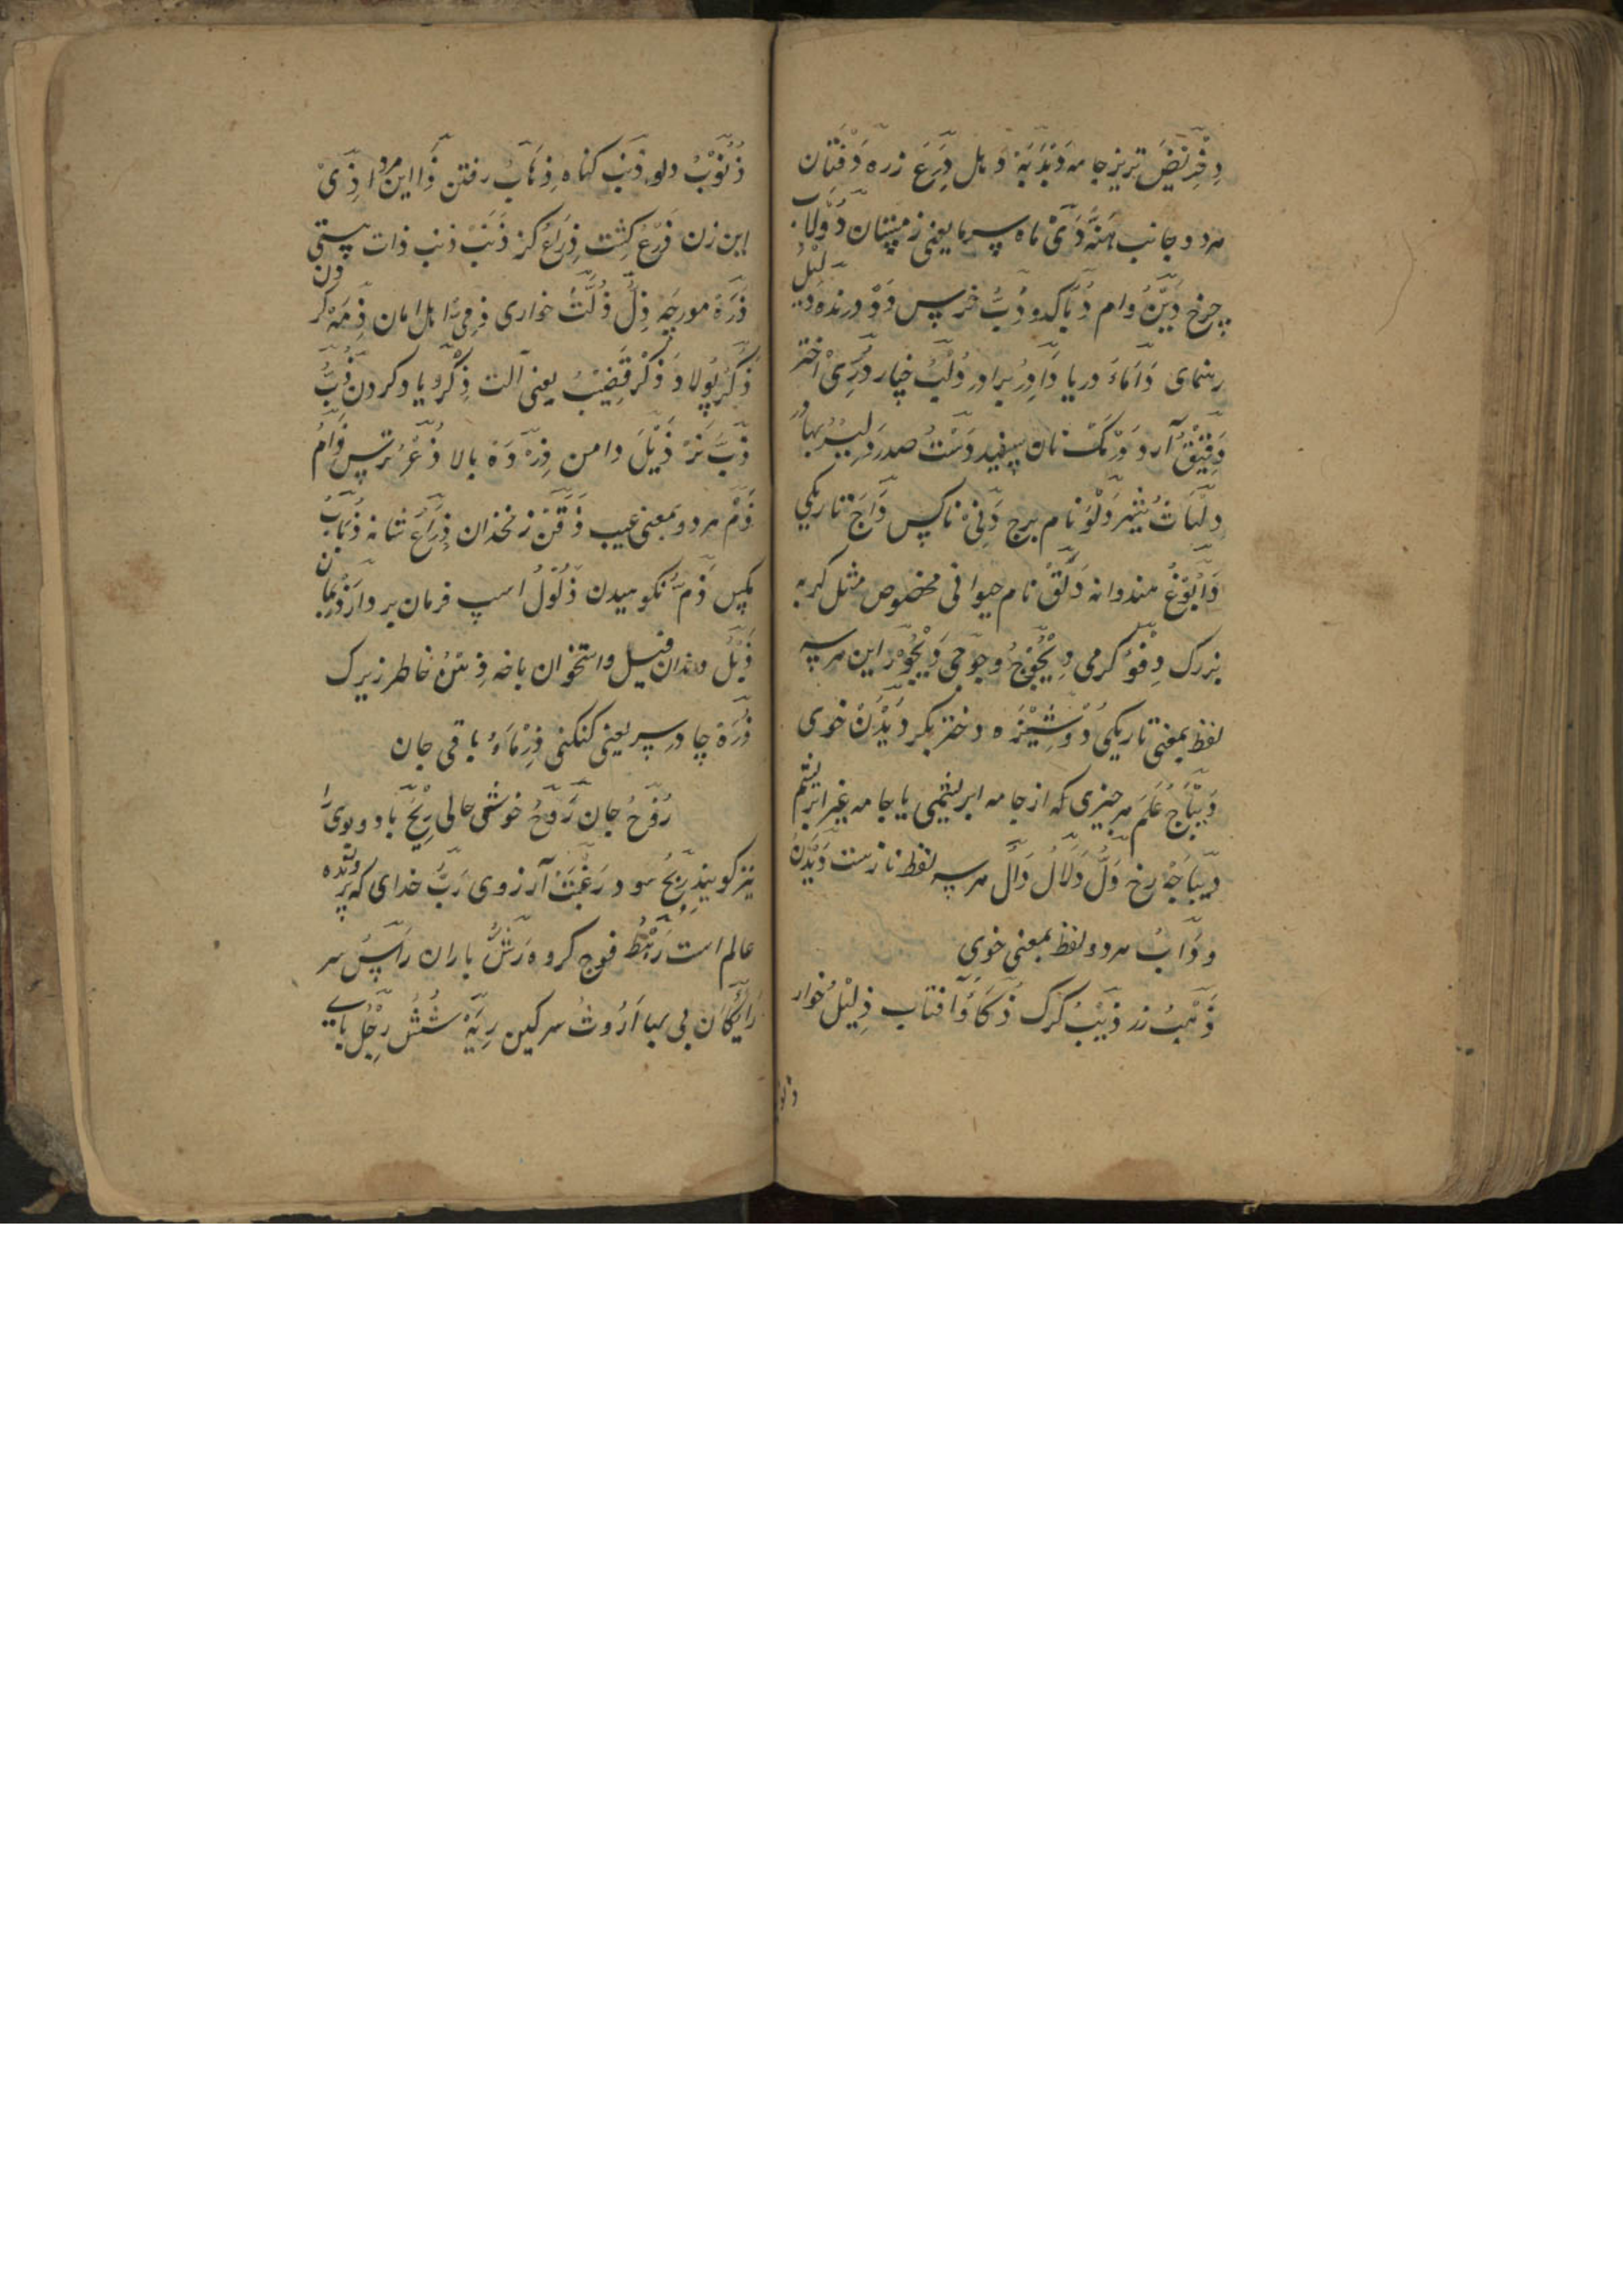 دِخْرِیْض تریز جامه دَبْدَبَهْ دهل دِرْعَ زره دَفَّتَان
هر دو جانب هَنَّهْ دَیْ ماه سرما یعنی زمستان دُولَاب
چرخ دَیْنُ وام دُبَّا کدو دُبُّ خرس دَدْ درنده دَلِیْلُ
رہنمای دَأمَاءُ دریا دَادَرْ برادر دُلْبُ خیار دُرِّیْ اختر
دَقِیْقُ آرد دَرْمَکْ نان سپید دَسْتُ صدر دِلِیْرْ بهادر
دِلْهَاثُ شیر دَلْوُ نام برج دَنِیْ ناکس دَاجْ تاریکی
دَابُوْغُ هندوانه دَلَقْ نام حیوانی مخصوص مثل گربه
بزرک دِفْوُ گرمی دَیْجُوْجُ وجوجی دَیْجُوْرْ این هر سه
لفظ بمعنی تاریکی دُوْشِیْزَه دختر بکر دَیْدَنْ خوی
دَیْبَاجُ عَلَم هر چیزی که از جامه ابریشمی یا جامه غیر ابریشم
دِیْبَاجَهْ رخ دَلُّ دَلَالُ دَالّ هر سه لفظ نازست دَیْدَنُ
و دَابُ هر دو لفظ بمعنی خوی
ذَهَبُ زر ذِیْبُ گرک ذُکَاءُ آفتاب ذِلِیْلُ خوار
ذنو
ذَنُوْبُ دلو ذَنْب کناه ذِهَابُ رفتن ذَا این مرد ذِیْ
این زن ذَرْعْ کِشت ذِرَاعْ کز ذَنَبْ ذنب ذات هستی
ذَرَّهْ مورچه ذِلُّ ذِلَّتُ خواری ذِمِّیْ اهل امان ذِمَّهْ کردن
ذَکَرْ پولاد ذَکَرْ قَضِیْبْ یعنی آلت ذِکْرُ یاد کردن ذُبُّ
ذَبُّ نَرْ ذَیْلَ دامن ذِرْوَهْ بالا ذُعْرُ ترس ذَامُ
ذَمْ هر دو بمعنی عیب ذَقَنْ زنخدان ذِرَاعْ شانه ذُبَابُ
مکس ذَمّ نکوهیدن ذَلُوْلُ اسپ فرمان بردار
ذَبْلُ دندان فیل و استخوان باخه ذِهْنُ خاطر زیرک
ذُرَهْ چادر سر یعنی کنکنی ذِمْاءُ باقی جان
رُوْحُ جان رَوْحُ خوشی حالی رِیْحُ باد و بوی را
نیز کویند رِبْحُ سود رَغْبَتْ آرزوی رَبُّ خدای که پرورنده
عالم است رَهْطُ فوج کروه رَشُّ باران رَاسُ سر
رَایْکَان بی بها رَوْثُ سرکین رِیَهْ شُشْ رِجْلُ پای